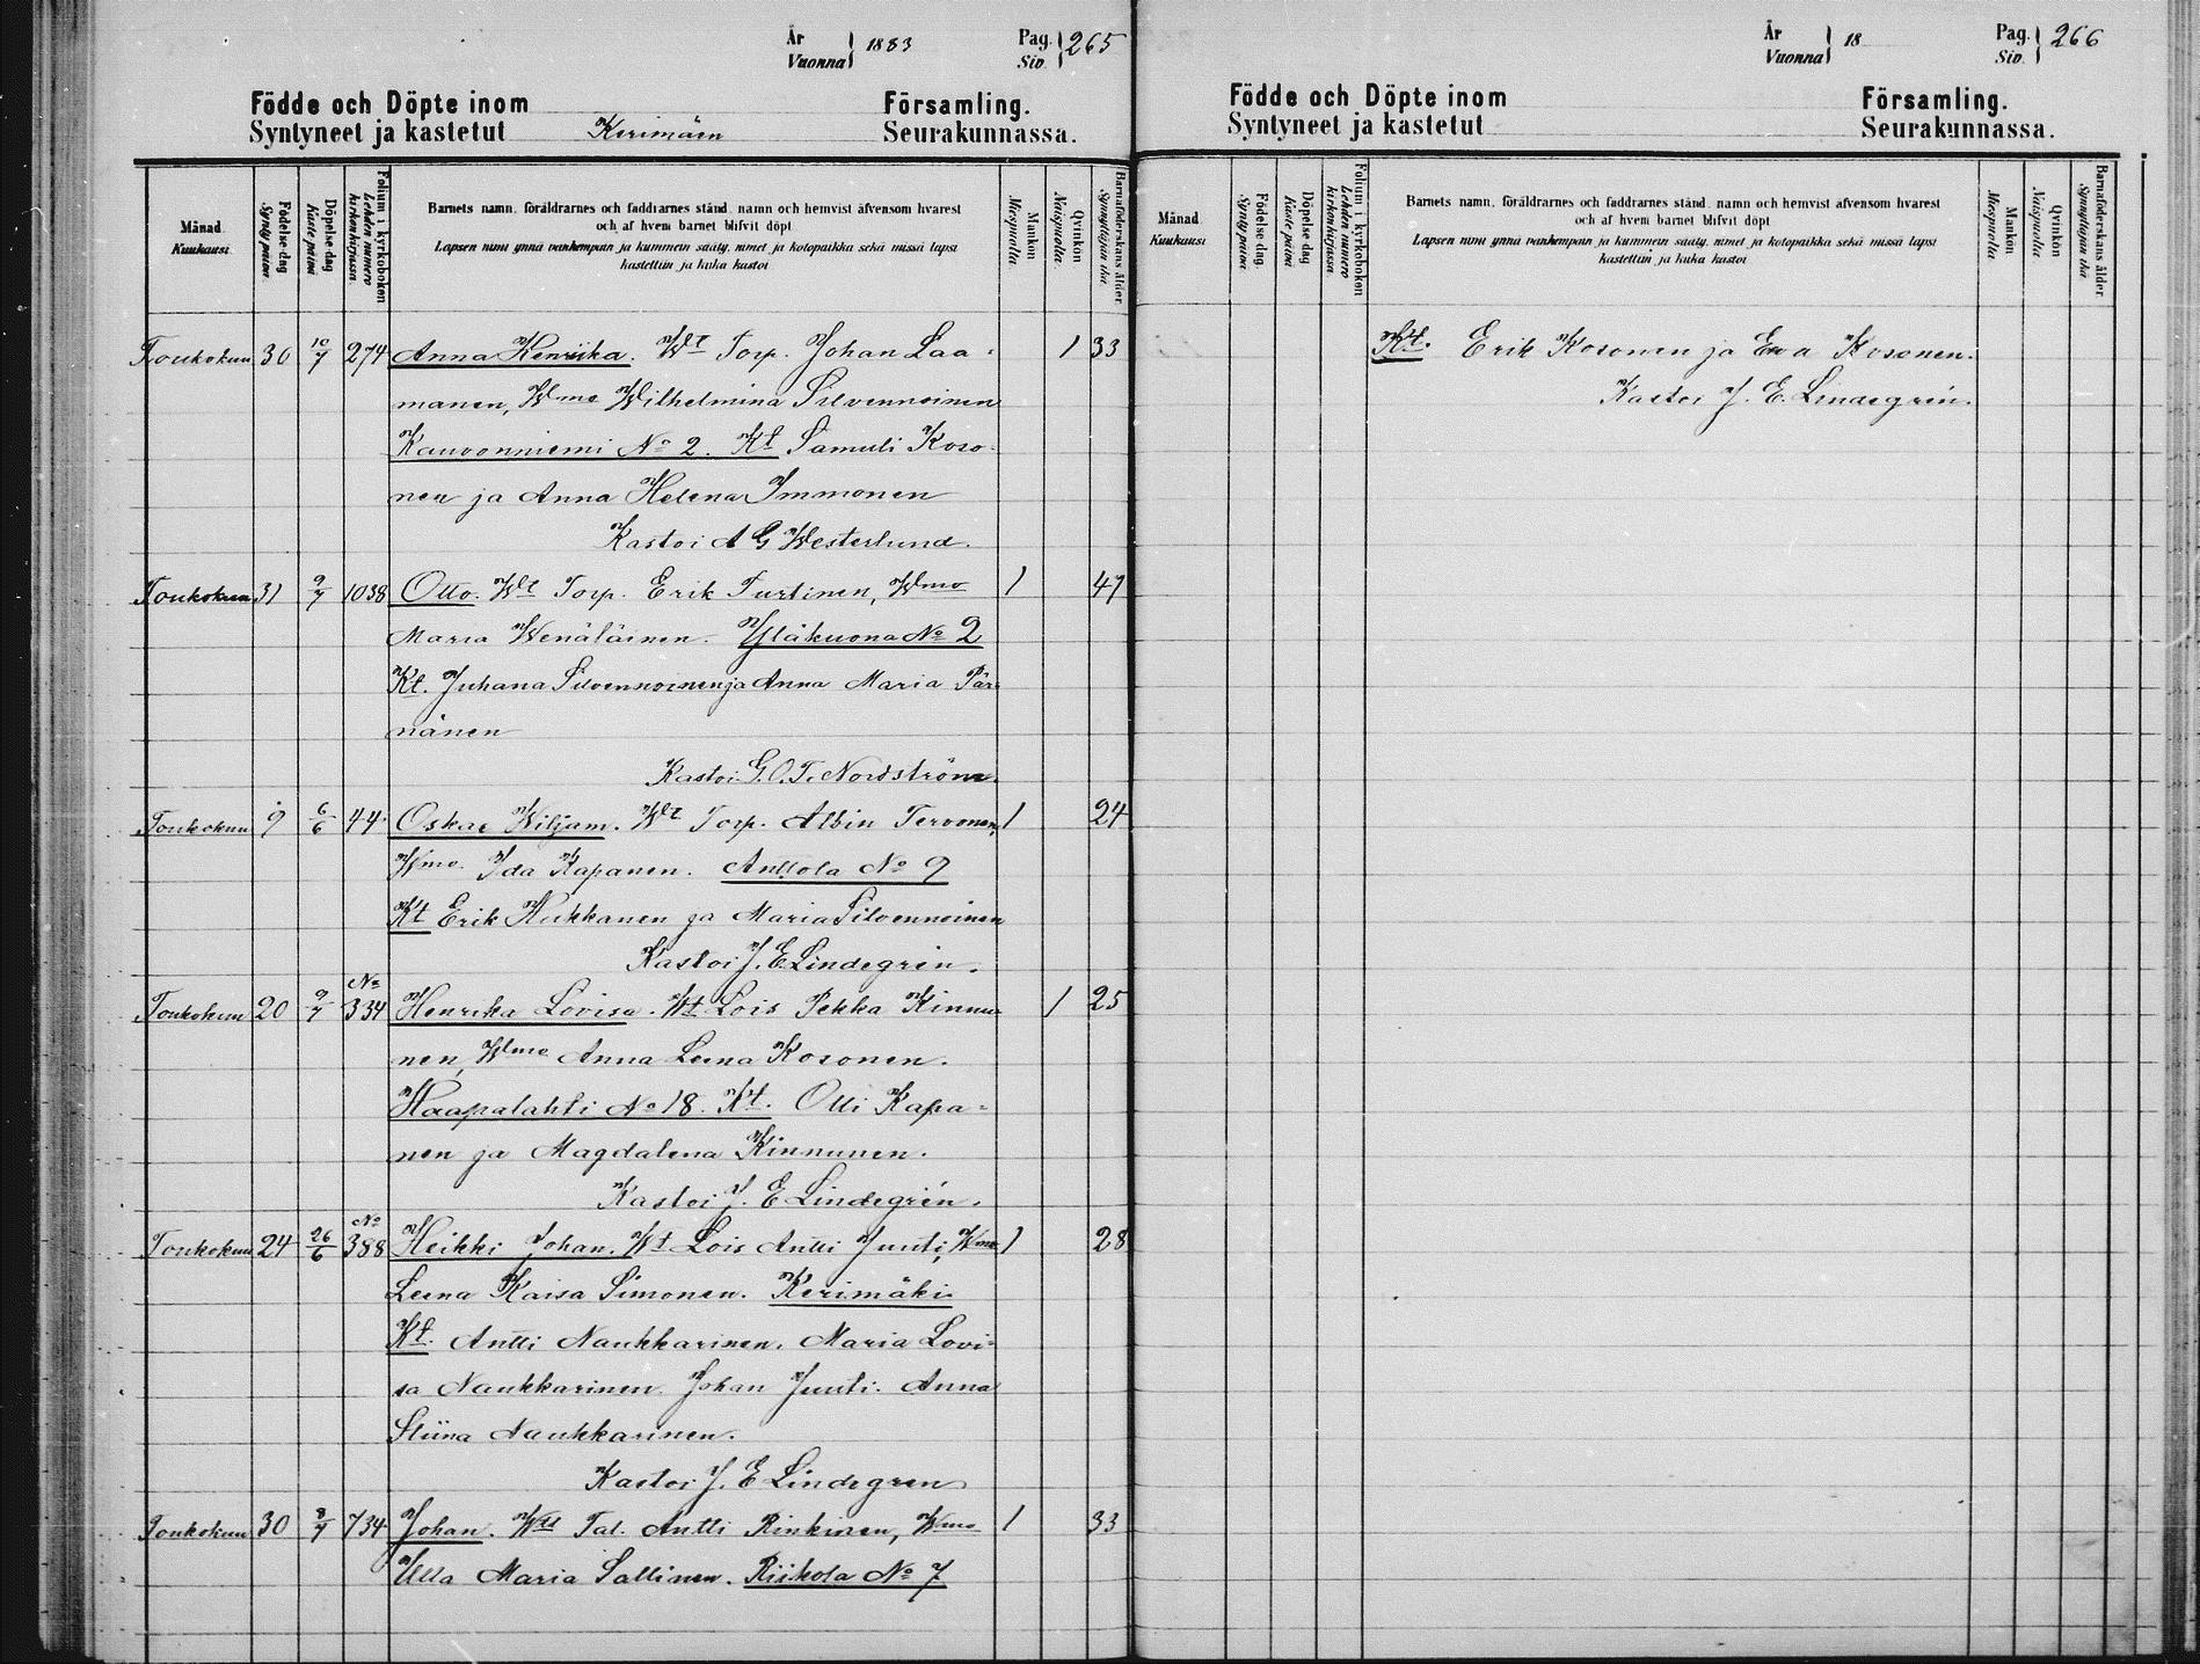 År
Vuonna 1883
Pag. Siv. 265
Födde och Döpte inom Församling.
Syntyneet ja kastetut Kerimäen Seurakunnassa.
Månad Kuukausi
Födelse dag Synty päivä
Döpelse dag Kaste päivä
Folium i kyrkoboken Lehden numero kirkonkirjassa
Barnets namn, föräldrarnes och faddrarnes stånd, namn och hemvist äfvensom hvarest
och af hvem barnet blifvit döpt
Lapsen nimi ynnä vanhempain ja kummein sääty, nimet ja kotopaikka sekä missä lapsi
kastettiin ja kuka kastoi
Mankön Miespuolta
Qvinkön Naispuolta
Barnaföderskans ålder Synnyttäjän ikä
Toukokuu 30 10/7 274 Anna Henriika. Wt Torp. Johan Laa- 1 33
manen, Wmo Wilhelmina Silvennoinen
Kauvonniemi No 2. Kt Samuli Koso-
nen ja Anna Helena Immonen
Kastoi A G Westerlund.
Toukokuu 31 9/7 1038 Otto. Wt Torp. Erik Turtinen, Wmo 1 47
Maria Wenäläinen. Yläkuona No 2
Kt. Juhana Silvennoinen ja Anna Maria Pär-
nänen
Kastoi G. O. T. Nordström.
Toukokuu 9 6/6 44 Oskar Wiljam. Wt Torp. Albin Tervonen, 1 24
Wmo Ida Kapanen. Anttola No 9
Kt Erik Kukkanen ja Maria Silvennoinen
Kastoi J. E. Lindegrén.
Toukokuu 20 9/7 No 334 Henrika Lovisa. Wt Lois Pekka Kinnu- 1 25
nen, Wmo Anna Leena Kosonen.
Haapalahti No 18. Kt. Olli Kapa-
nen ja Magdalena Kinnunen.
Kastoi J. E Lindegrén.
Toukokuu 24 26/6 No 388 Heikki Johan. Wt Lois Antti Juuti, Wmo 1 28
Leena Kaisa Simonen. Kerimäki
Kt. Antti Naukkarinen. Maria Lovi-
sa Naukkarinen. Johan Juuti. Anna
Stiina Naukkarinen.
Kastoi J. E Lindegren
Toukokuu 30 8/7 734 Johan. Wtt Tal. Antti Rinkinen, Wmo 1 33
Ulla Maria Sallinen. Riikola No 7
År
Vuonna 18
Pag. Siv. 266
Födde och Döpte inom Församling.
Syntyneet ja kastetut Seurakunnassa.
Månad Kuukausi
Födelse dag Synty päivä
Döpelse dag Kaste päivä
Folium i kyrkoboken Lehden numero kirkonkirjassa
Barnets namn, föräldrarnes och faddrarnes stånd, namn och hemvist äfvensom hvarest
och af hvem barnet blifvit döpt
Lapsen nimi ynnä vanhempain ja kummein sääty, nimet ja kotopaikka sekä missä lapsi
kastettiin ja kuka kastoi
Mankön Miespuolta
Qvinkön Naispuolta
Barnaföderskans ålder Synnyttäjän ikä
Kt. Erik Kosonen ja Eva Kosonen.
Kastoi J. E. Lindegrén.